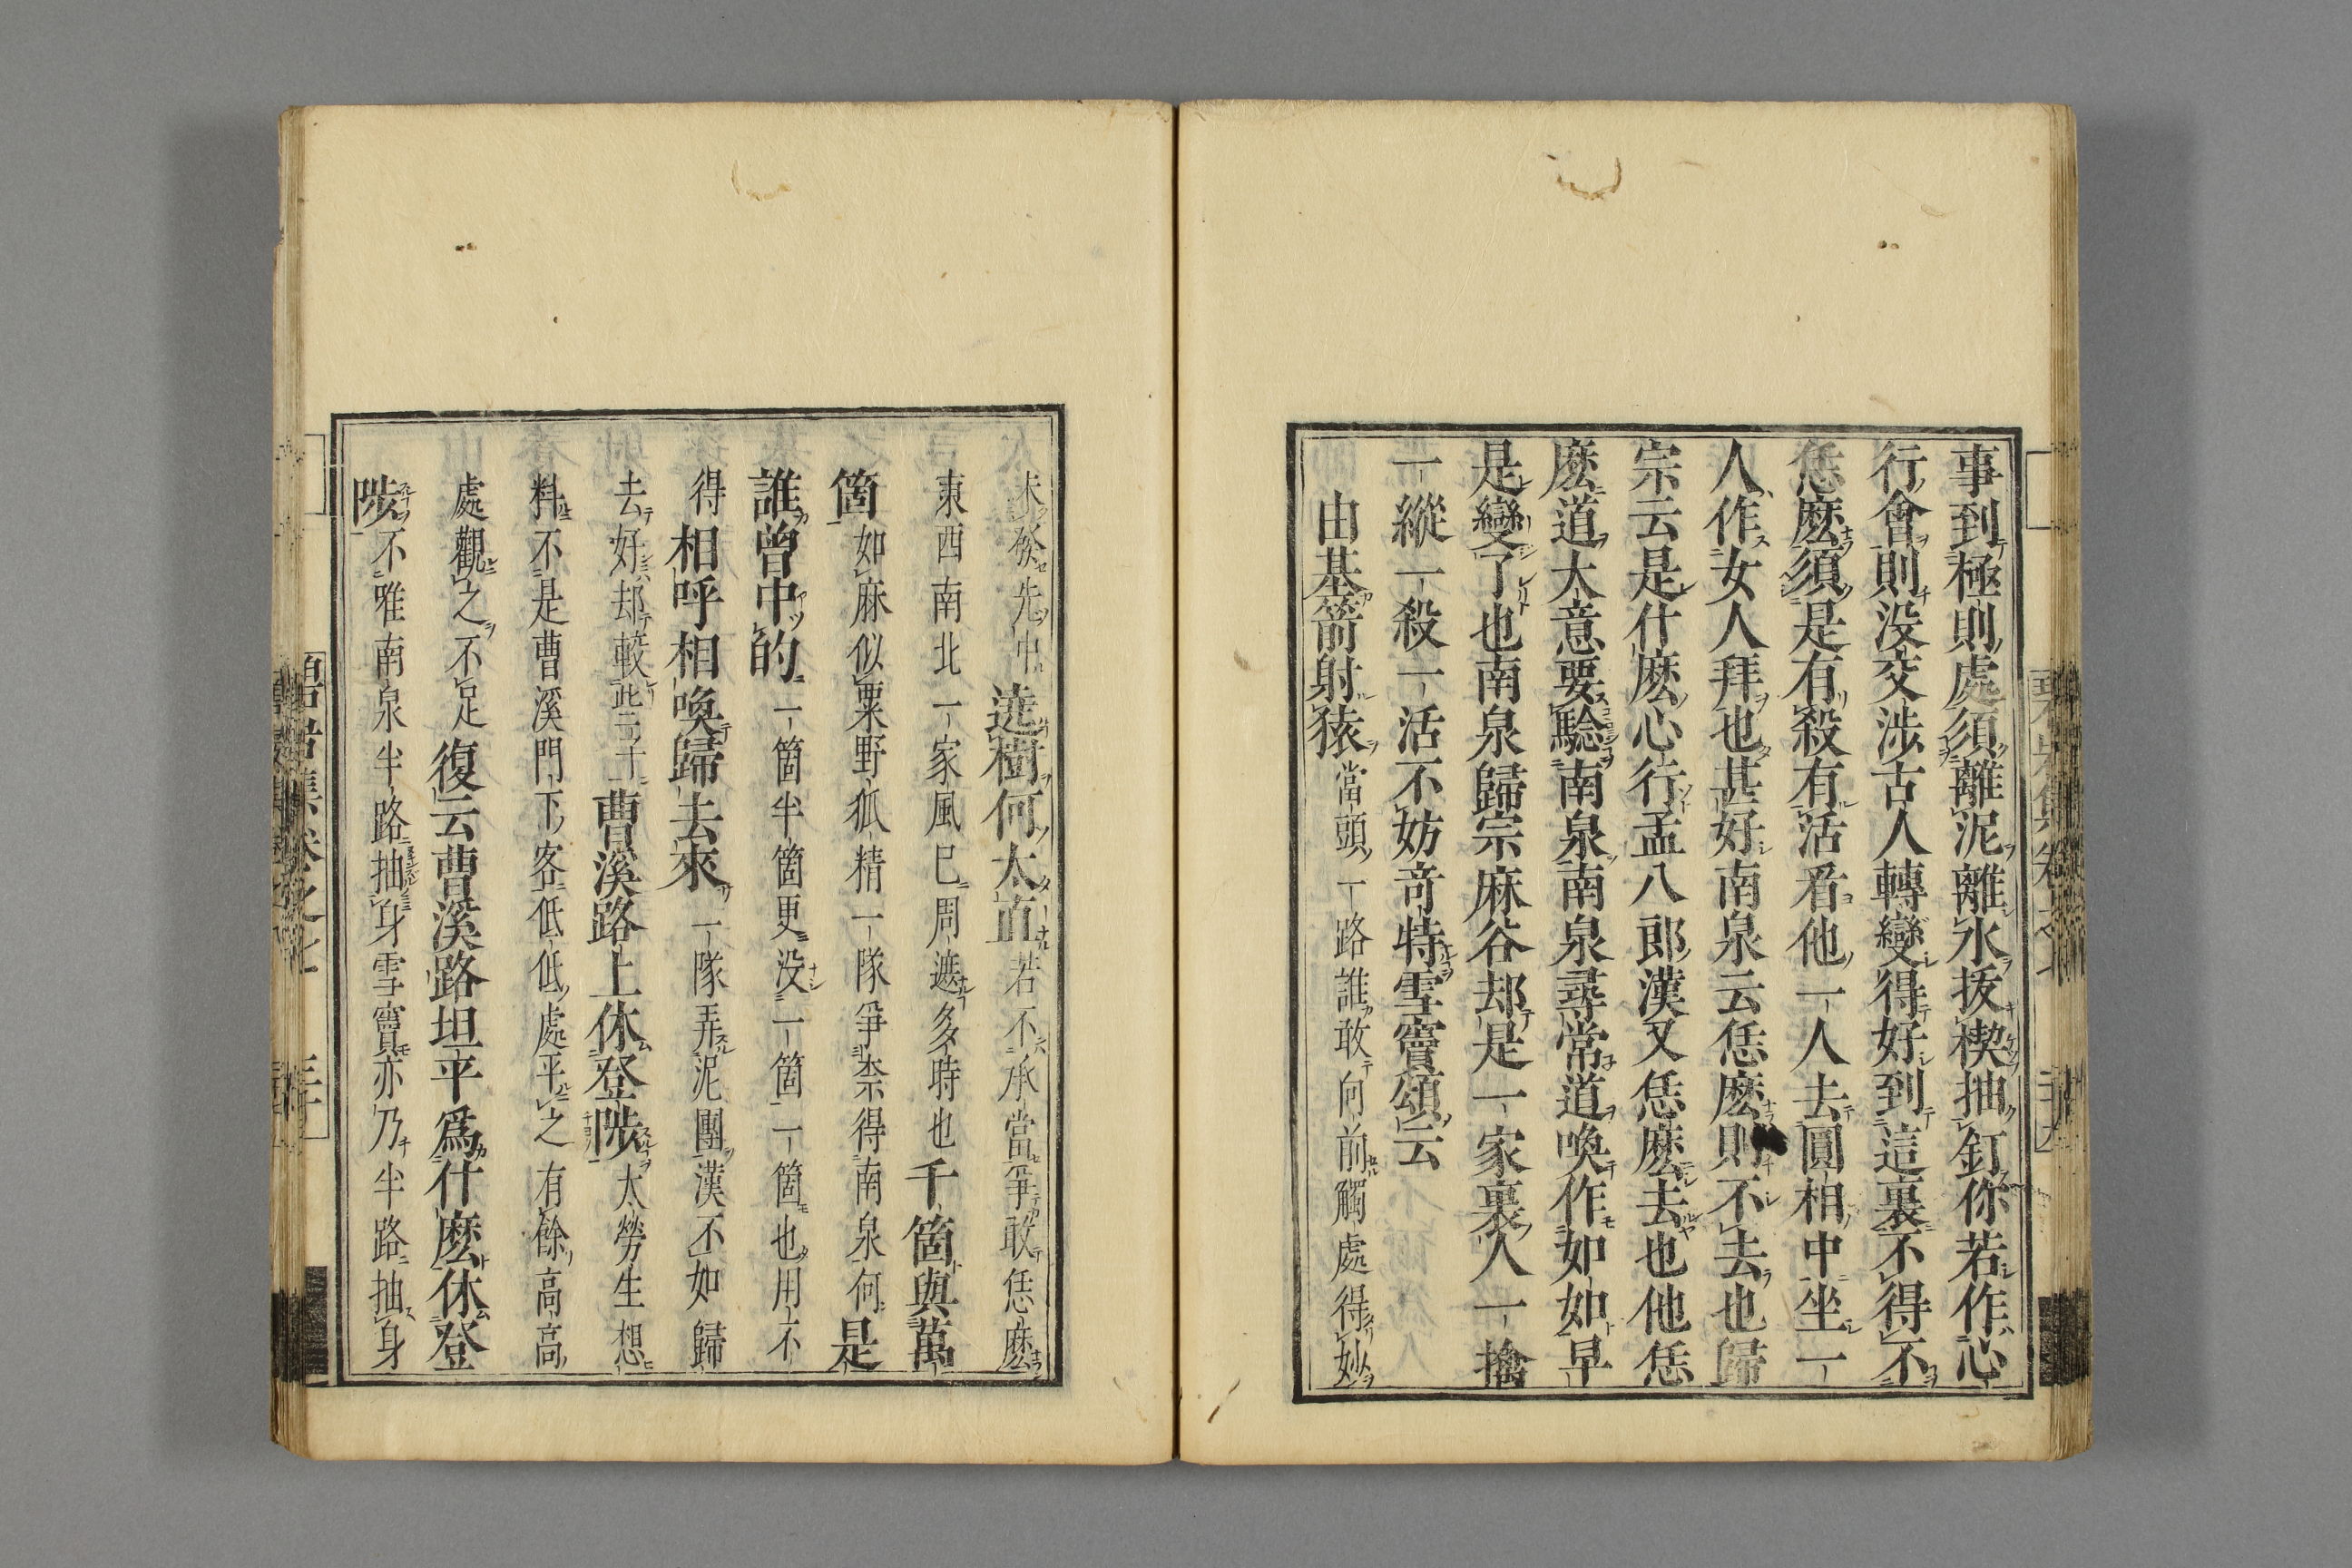 事到極則處須離泥離水拔楔抽釘你若作心
行會則没交涉古人轉變得好到這裏不得不
恁麽須是有殺有活看他一人去圓相中坐一
人作女人拜也甚好南泉云恁麽則不去也歸
宗云是什麽心行孟八郎漢又恁麽去也他恁
麽道大意要驗南泉南泉尋常道喚作如如早
是變了也南泉歸宗麻谷却是一家裏人一擒
一縱一殺一活不妨竒特雪竇頌云
由基箭射猿當頭一路誰敢向前觸處得妙
未發先中遶樹何太直若不承當爭敢恁麽
東西南北一家風已周遮多時也千箇與萬
箇如麻似粟野狐精一隊爭柰得南泉何是
誰曾中的一箇半箇更没一箇一箇也用不
得相呼相喚歸去來一隊弄泥團漢不如歸
去好却較些子曹溪路上休登陟太勞生想
料不是曹溪門下客低低處平之有餘高高
處觀之不足復云曹溪路坦平爲什麽休登
陟不唯南泉半路抽身雪竇亦乃半路抽身